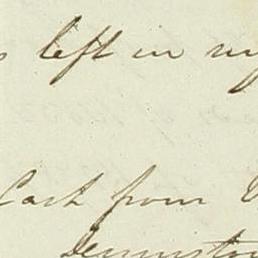 left in my
Cash from
Dennistou